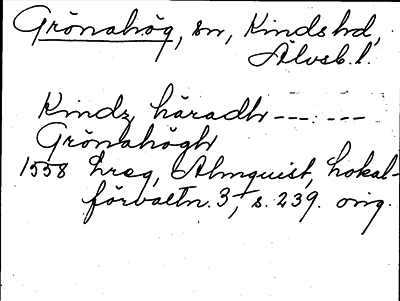 Grönahög, sn, Kinds hd,
Älvsb. l.
Kindz häradh --- . ---
Grönahögh
1558 hreg, Almquist, Lokal-
förvaltn. 3, s. 239. orig.